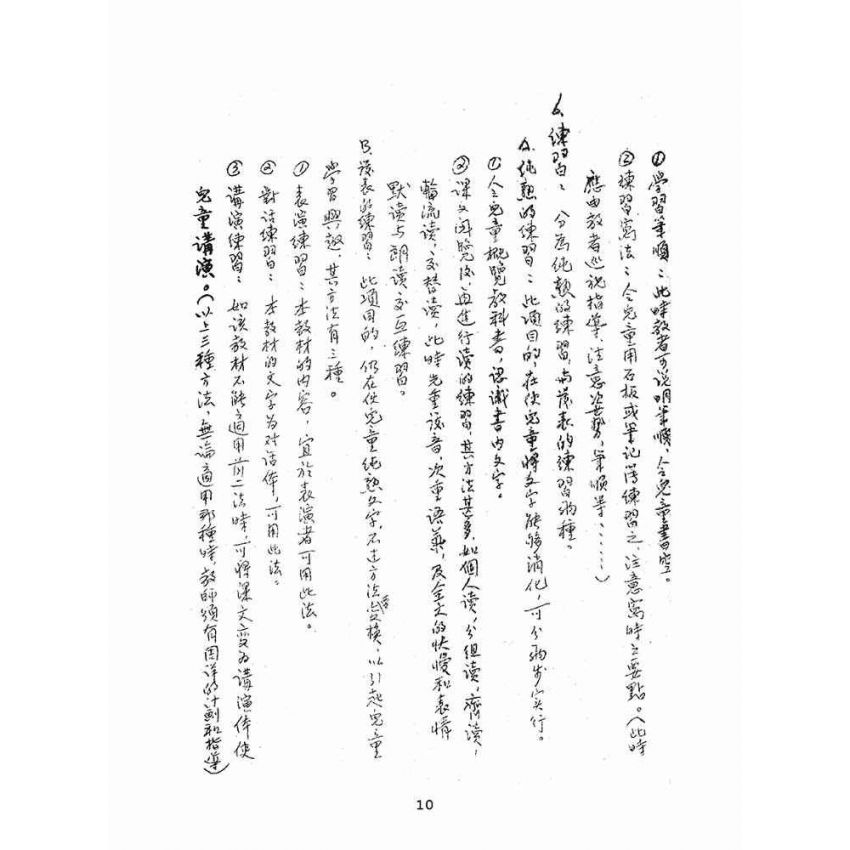 ①學習筆順：此時教者可说明筆順，令兒童書空。
②練習寫法：令兒童用石板或筆记簿練習之，注意寫時之要點。（此時
應由教者巡视指導，注意姿勢，筆順等……）
6.練習：分為純熟的練習与發表的練習兩種。
A.純熟的練習：此項目的，在使兒童將文字能夠消化，可分兩步实行。
①令兒童概覽教科書，認識書内文字。
②课文阅覽後，再進行读的練習，其方法甚多，如個人读，分组读，齊读，
輪流读，交替读，此時先重读音，次重语氣，及全文的快慢和表情
默读与朗读交互練習。
B.發表的練習：此項目的，仍在使兒童純熟文字，不过方法變换，以引起兒童
學習興趣，其方法有三種。
①表演練習：本教材的内容，宜於表演者可用此法。
②對话練習：本教材的文字为对话体，可用此法。
③講演練習：如该教材不能適用前二法時，可將课文变为講演体使
兒童講演。（以上三種方法，無論適用那種時，教師須有周详的计劃和指導）
10